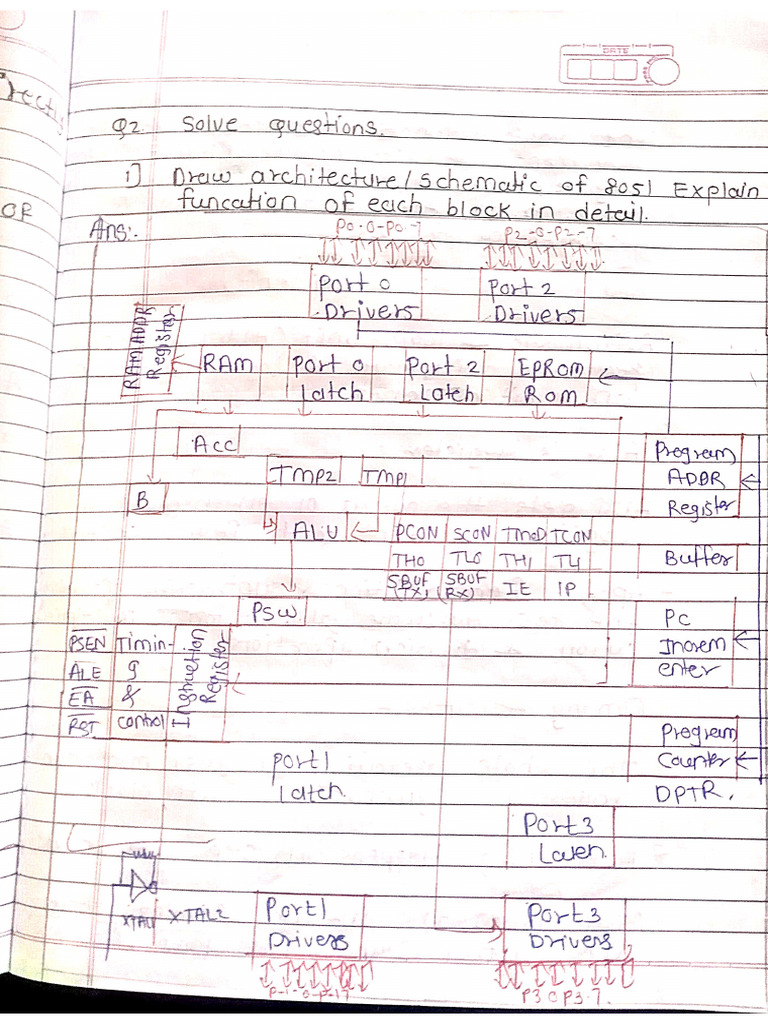 DATE
Q2 Solve questions.
1) Draw architecture/schematic of 8051 Explain
funcation of each block in detail.
OR
Ans:-
P0.0-P0.7 P2-0-P2-7
Port 0 Port 2
Drivers Drivers
RAM ADDR
Register
RAM Port 0 Port 2 EPROM
Latch Latch Rom
Acc
Program
ADDR
Register
TMP2 TMP1
B
ALU
PCON SCON TMOD TCON
TH0 TL0 TH1 TL1
SBUF SBUF IE IP
(TX) (RX)
Buffer
PSW
PC
Increm
enter
PSEN Timin-
ALE g
EA &
RST control
Instruction
Register
Program
Counter
DPTR.
Port1
latch.
Port3
XTAL1 XTAL2
Port1 Port3
Drivers Drivers
P-1-0-P-17 P3 0 P3.7.